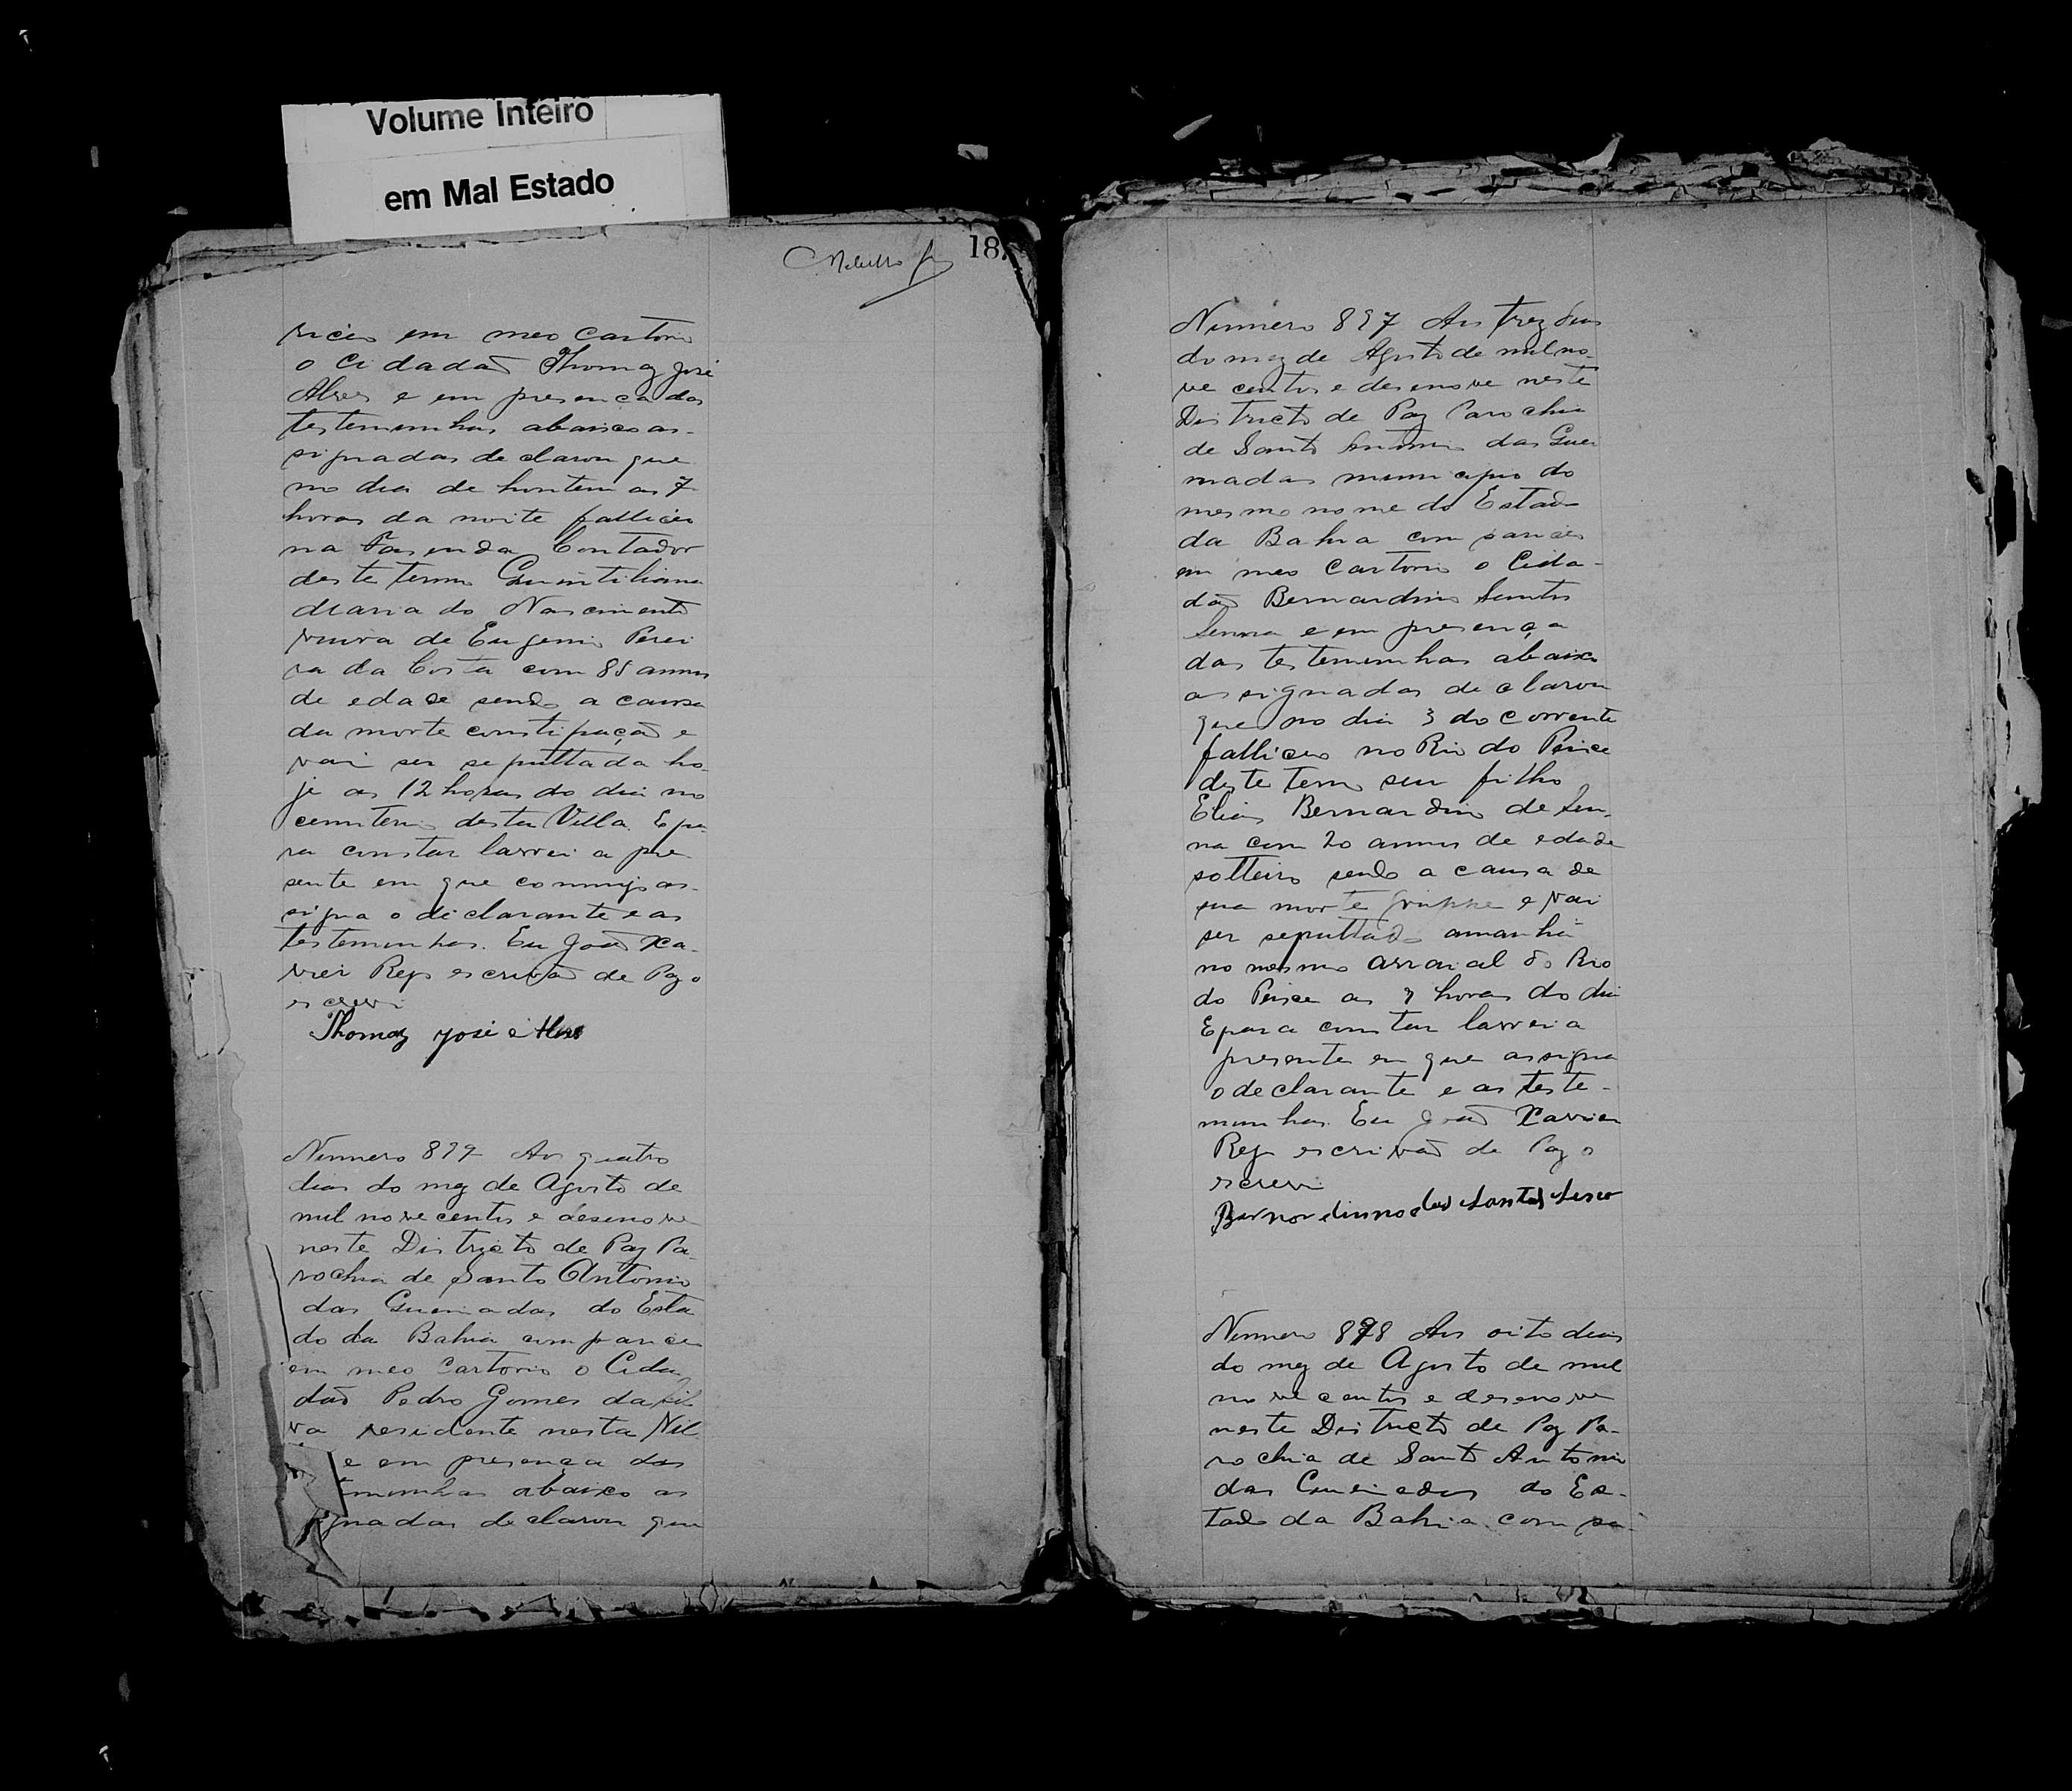 Volume Inteiro
em Mal Estado
18
receu em meo Cartorio
o Cidadaõ Thomaz José
Alves e em presença das
testemunhas abaixo as-
signadas declarou que
no dia de hontem as 7
horas da noite falleceu
na Fasenda Contador
deste termo Quintiliana
Maria do Nascimento
viuva de Eugenio Perei
ra da Costa com 85 annos
de edade sendo a causa
da morte constipaçaõ e
vai ser sepultada ho-
je as 12 horas do dia no
cemiterio desta Villa. E pa
ra constar lavrei a pre
sente em que commigo as-
signa o declarante e as
testemunhas. Eu Joaõ Xa-
vier Rego escrivaõ de Paz o
escrevi
Thomaz José Alves
Numero Aos quatro
dias do mez de Agosto de
mil novecentos e desenove
neste Districto de Paz Pa-
rochia de Santo Antonio
das Queimadas do Esta
do da Bahia compareceu
em meo Cartorio o Cida
daõ Pedro Gomes da Sil
va residente nesta Vil
e em presença das
temunhas abaixo as
signadas declarou que
Numero 897 Aos trez dias
do mez de Agosto de mil no-
ve centos e desenove neste
Districto de Paz Parochia
de Santo Antonio das Quei
madas municipio do
mesmo nome do Estado
da Bahia compareceu
em meo Cartorio o Cida-
daõ Bernardino Santos
Senna e em presença
das testemunhas abaixo
assignadas declarou
que no dia 3 do corrente
falleceu no Rio do Peixe
deste termo seu filho
Elias Bernardino de Sen-
na com 20 annos de edade
solteiro sendo a causa de
sua morte grippe e vai
ser sepultado amanhã
no mesmo arraial do Rio
do Peixe as horas do dia
E para constar lavrei a
presente em que assigna
o declarante e as teste-
munhas. Eu Joaõ Xavier
Rego escrivaõ de Paz o
escrevi
Bernordinno dos Santos
Numero 898 Aos oito dias
do mez de Agosto de mil
nove centos e desenove
neste Districto de Paz Pa-
rochia de Santo Antonio
das Queimadas do Es-
tado da Bahia compa-